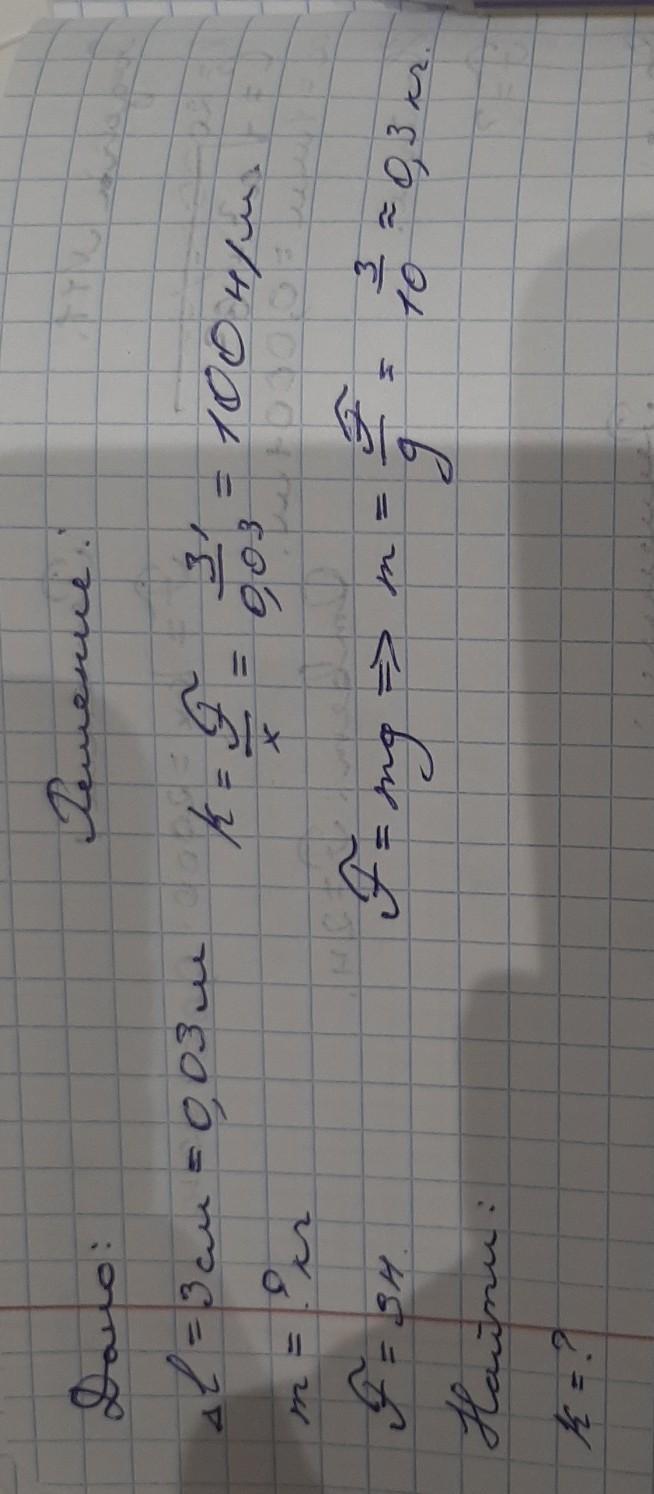 Дано:
Δl = 3 см = 0,03 м
m = ? кг
F = 3 Н.
Найти:
k = ?
Решение:
k = F/x = 3/0,03 = 100 Н/м.
F = mg => m = F/g = 3/10 ≈ 0,3 кг.